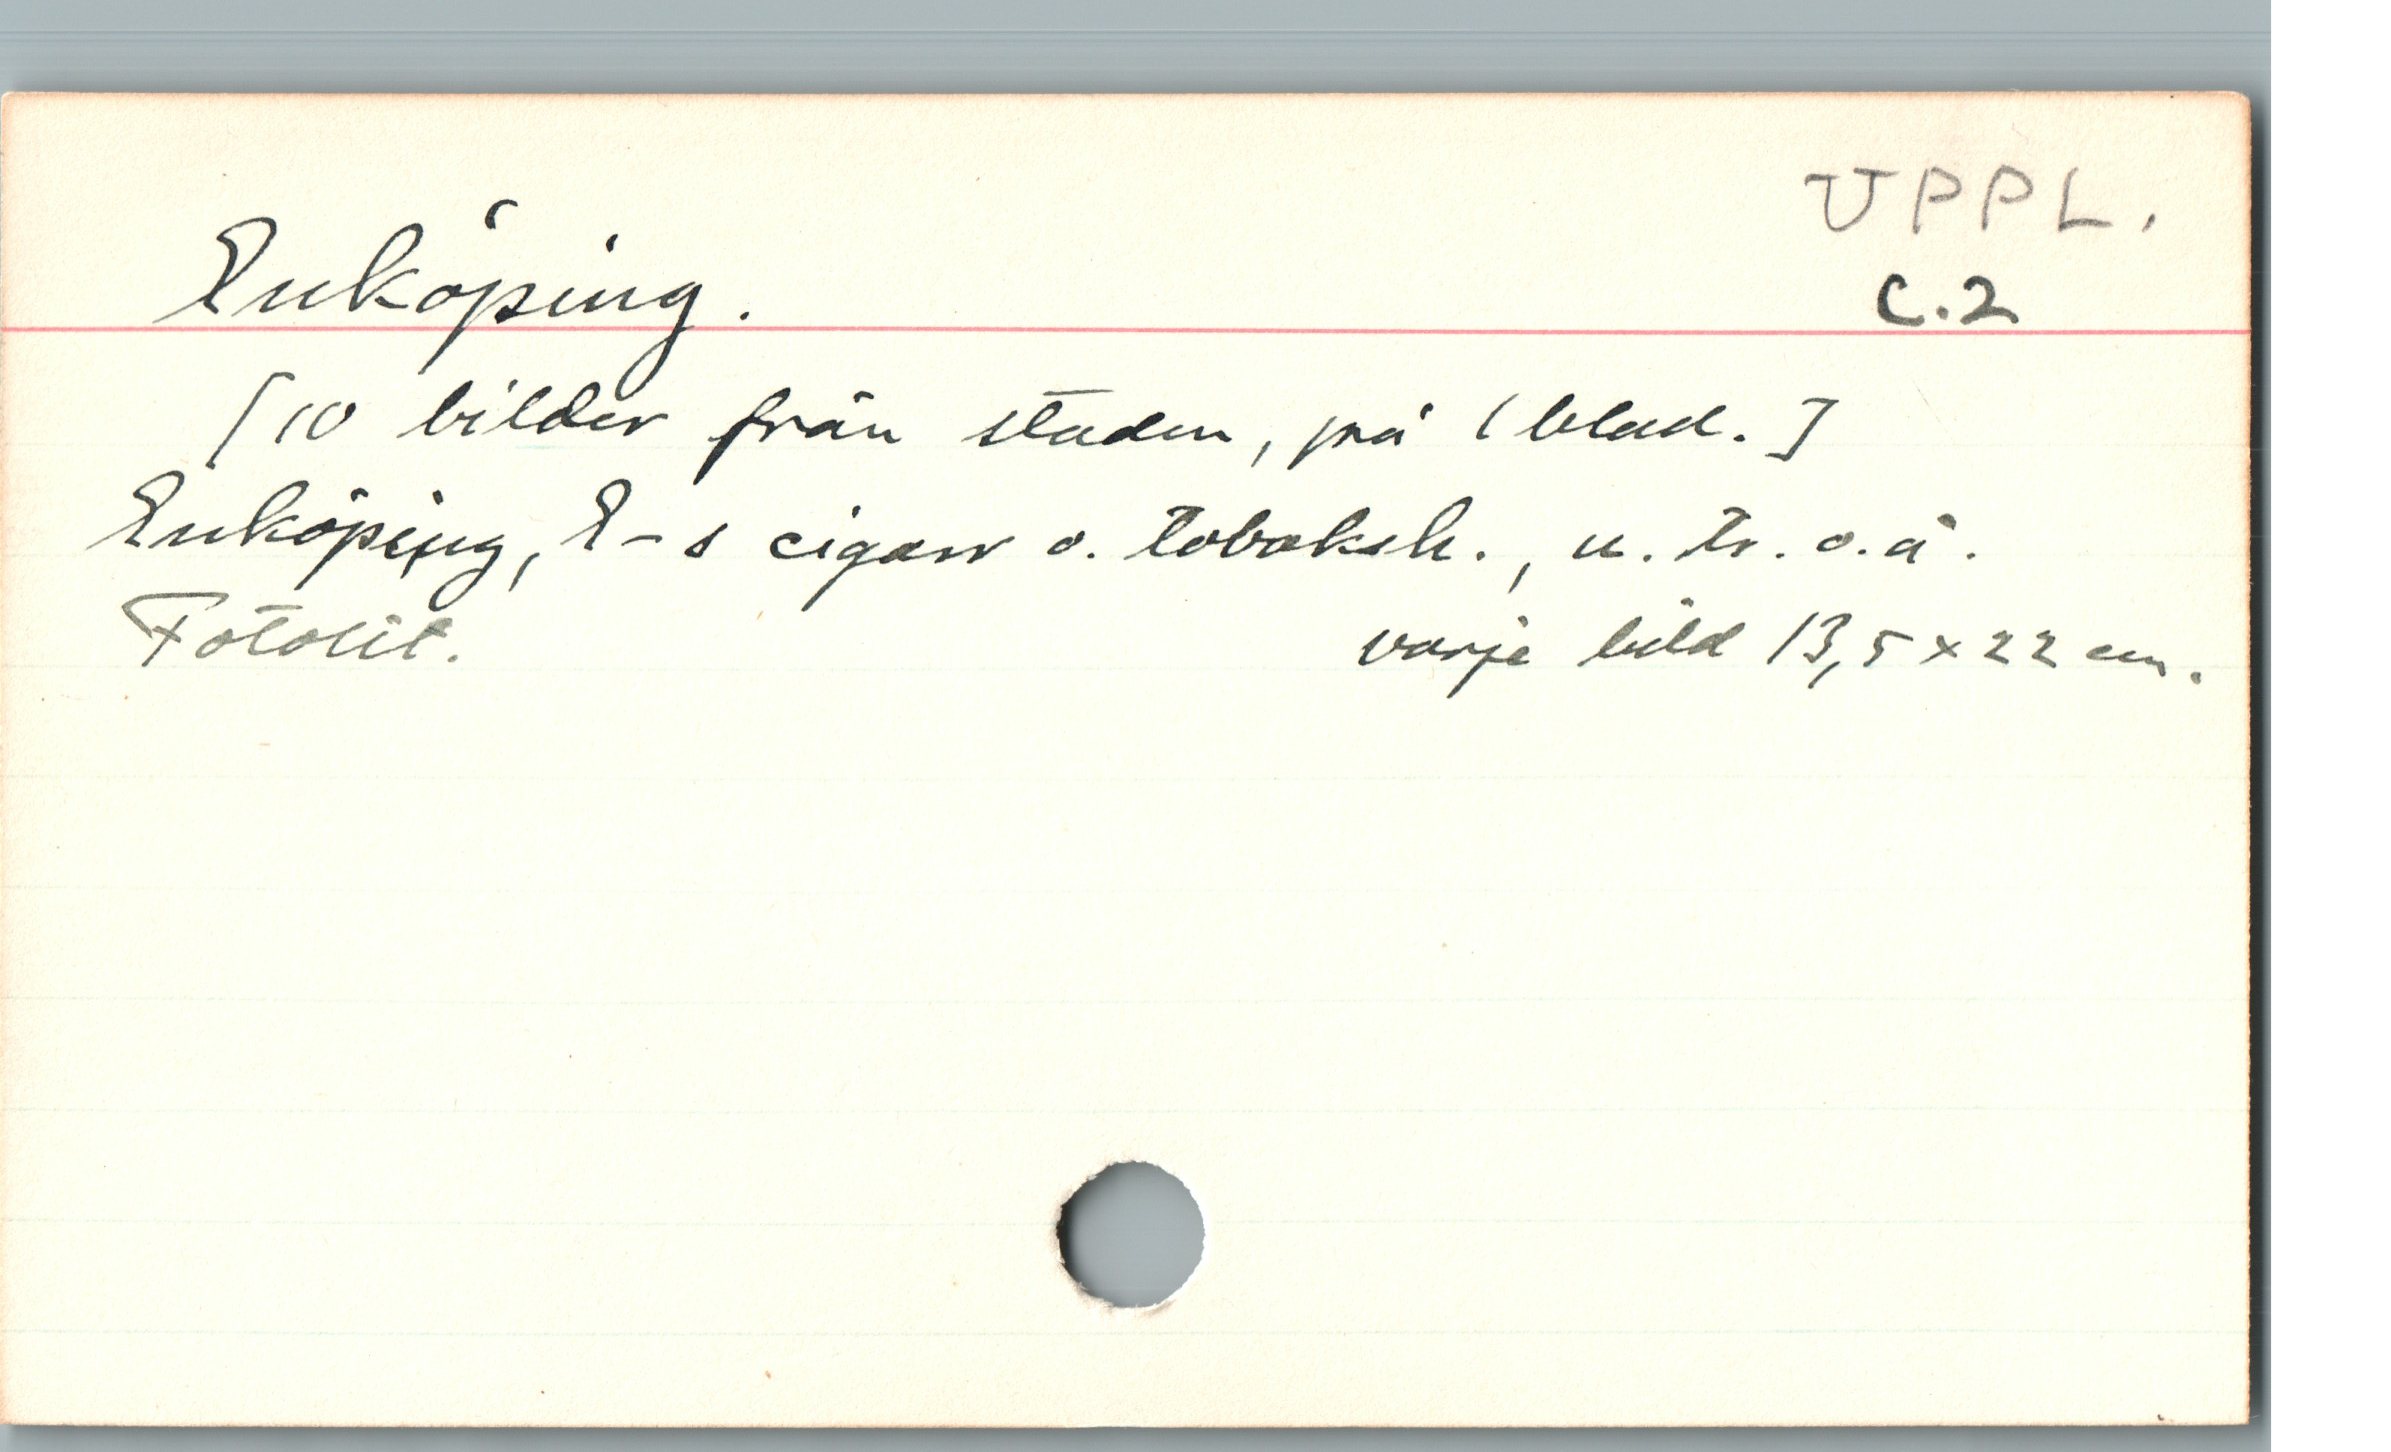 UPPL.
Enköping.
C.2
[10 bilder från staden, på 1 blad.]
Enköping, E-s cigarr o. tobaksh., u. tr. o. å.
Fotolit.
varje bild 13,5 x 22 cm.